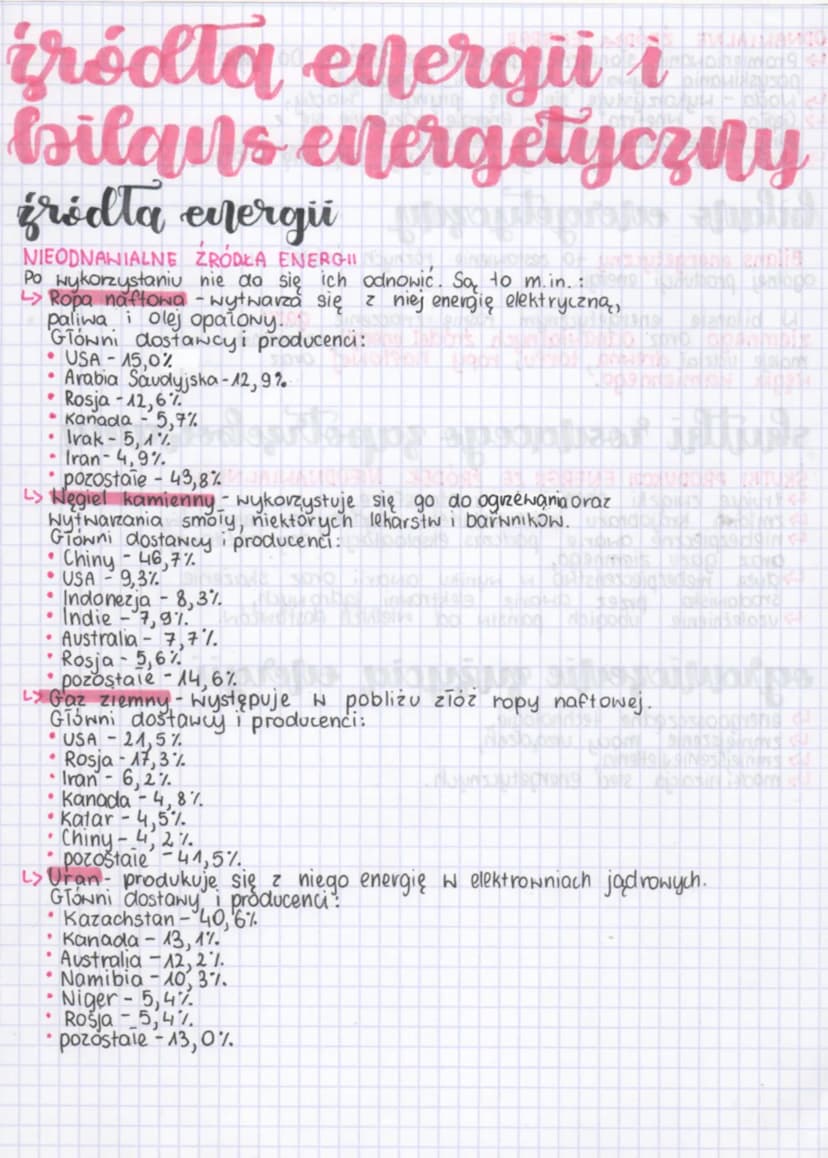 źródła energii i
bilans energetyczny
źródła energii
NIEODNAWIALNE ŹRÓDŁA ENERGII
Po wykorzystaniu nie da się ich odnowić. Są to m.in.:
↳ Ropa naftowa - wytwarza się z niej energię elektryczną,
paliwa i olej opałowy.
Główni dostawcy i producenci:
• USA - 15,0%
• Arabia Saudyjska - 12,9%
• Rosja - 12,6%
• Kanada - 5,7%
• Irak - 5,1%
• Iran - 4,9%
• pozostałe - 43,8%
↳ Węgiel kamienny - wykorzystuje się go do ogrzewania oraz
wytwarzania smoły, niektórych lekarstw i barwników.
Główni dostawcy i producenci:
• Chiny - 46,7%
• USA - 9,3%
• Indonezja - 8,3%
• Indie - 7,9%
• Australia - 7,7%
• Rosja - 5,6%
• pozostałe - 14,6%
↳ Gaz ziemny - występuje w pobliżu złóż ropy naftowej.
Główni dostawcy i producenci:
• USA - 21,5%
• Rosja - 17,3%
• Iran - 6,2%
• Kanada - 4,8%
• Katar - 4,5%
• Chiny - 4,2%
• pozostałe - 41,5%
↳ Uran - produkuje się z niego energię w elektrowniach jądrowych.
Główni dostawy i producenci:
• Kazachstan - 40,6%
• Kanada - 13,1%
• Australia - 12,2%
• Namibia - 10,3%
• Niger - 5,4%
• Rosja - 5,4%
• pozostałe - 13,0%